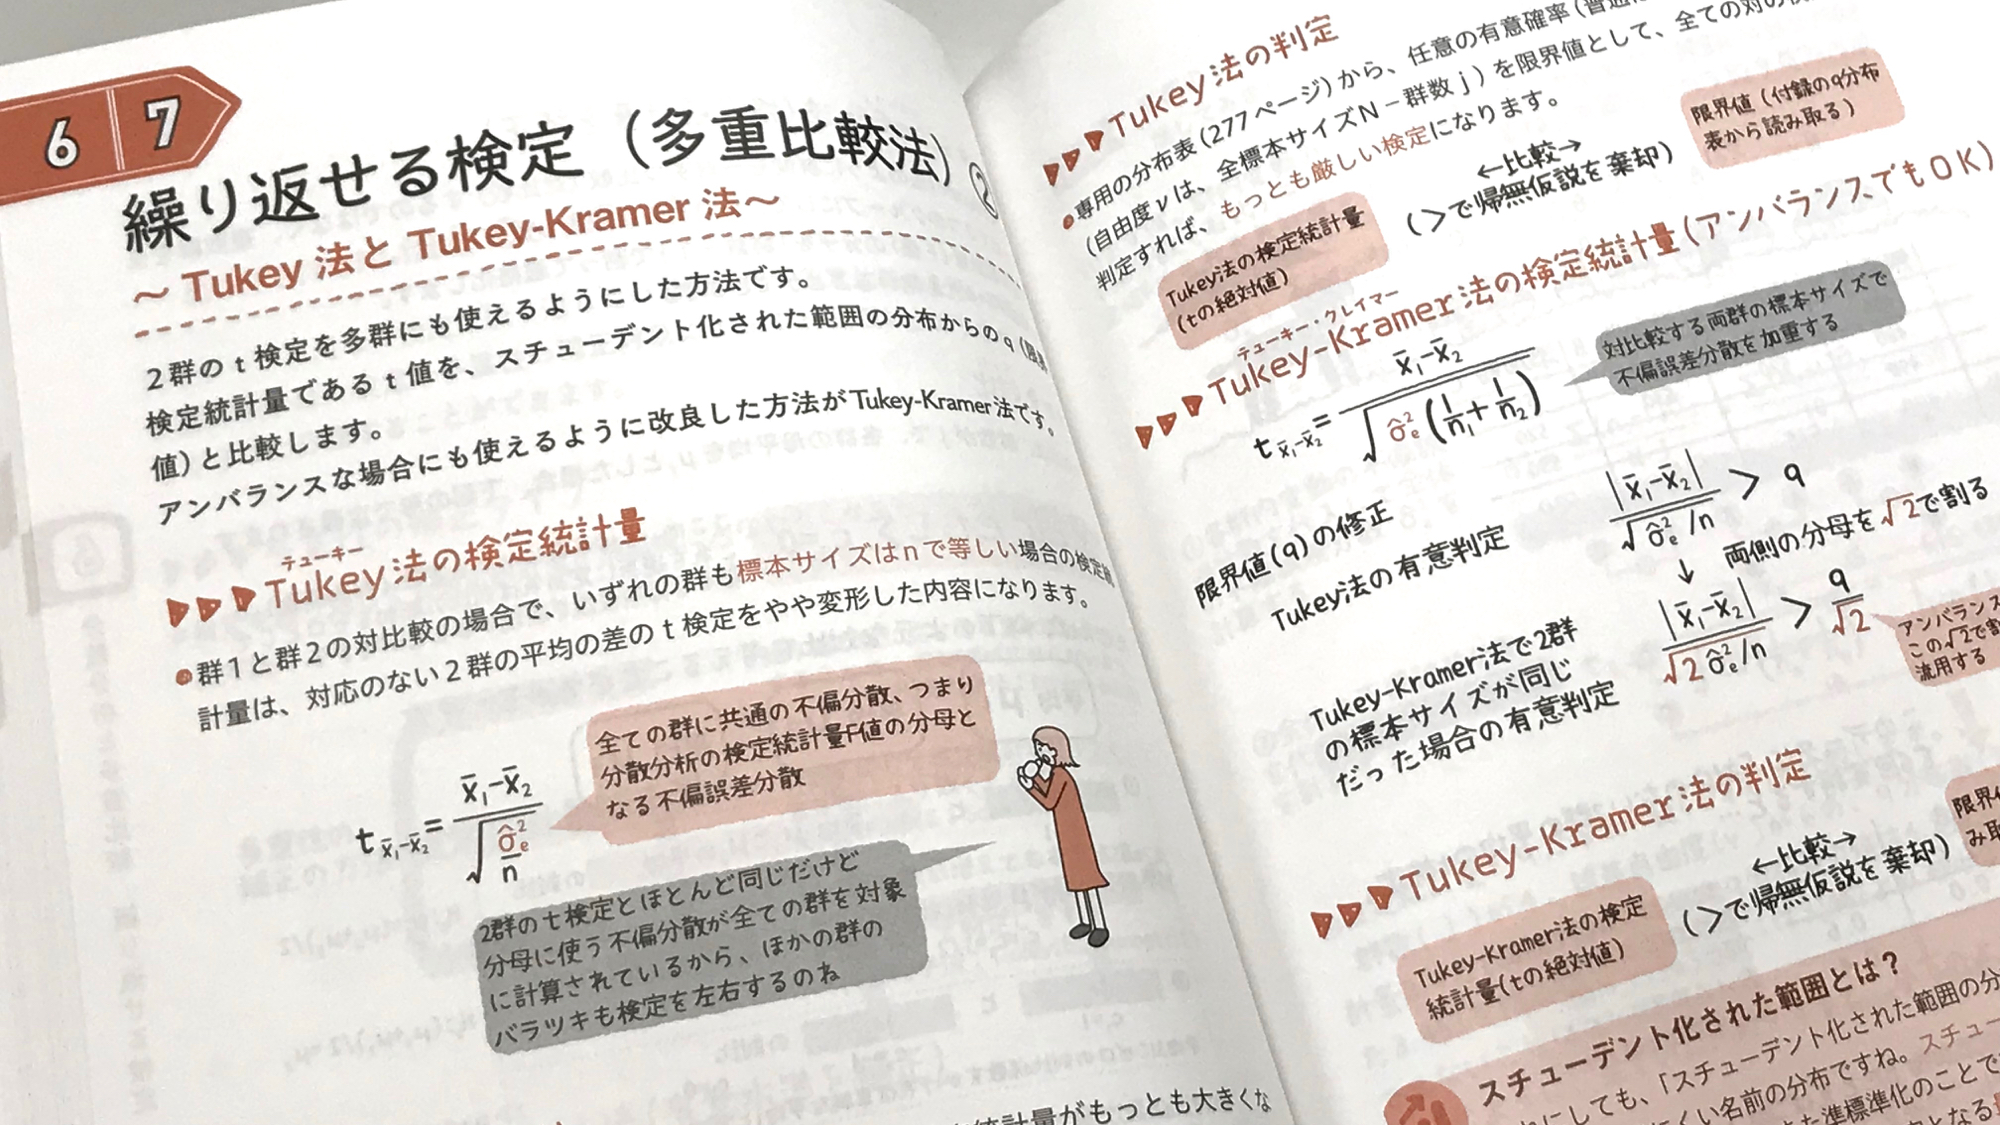 6 7
繰り返せる検定（多重比較法）②
～ Tukey 法と Tukey-Kramer 法～
2群の t 検定を多群にも使えるようにした方法です。
検定統計量である t 値を、スチューデント化された範囲の分布からの q（限界
値）と比較します。
アンバランスな場合にも使えるように改良した方法が Tukey-Kramer 法です。
テューキー
Tukey法の検定統計量
●群1と群2の対比較の場合で、いずれの群も標本サイズはnで等しい場合の検定統
計量は、対応のない2群の平均の差の t 検定をやや変形した内容になります。
全ての群に共通の不偏分散、つまり
分散分析の検定統計量F値の分母と
なる不偏誤差分散
t x̄₁-x̄₂ = x̄₁-x̄₂ / √(σ̂e² / n)
2群のt検定とほとんど同じだけど
分母に使う不偏分散が全ての群を対象
に計算されているから、ほかの群の
バラツキも検定を左右するのね
統計量がもっとも大きくな
Tukey法の判定
●専用の分布表（277ページ）から、任意の有意確率（普通は
（自由度νは、全標本サイズN－群数j）を限界値として、全ての対の
判定すれば、もっとも厳しい検定になります。
Tukey法の検定統計量
（tの絶対値）
←比較→
（＞で帰無仮説を棄却）
限界値（付録のq分布
表から読み取る）
テューキー・クレイマー
Tukey-Kramer法の検定統計量（アンバランスでもOK）
t x̄₁-x̄₂ = x̄₁-x̄₂ / √(σ̂e² (1/n₁ + 1/n₂))
対比較する両群の標本サイズで
不偏誤差分散を加重する
限界値（q）の修正
Tukey法の有意判定
|x̄₁-x̄₂| / √(σ̂e² /n) > q
↓ 両側の分母を√2で割る
Tukey-Kramer法で2群
の標本サイズが同じ
だった場合の有意判定
|x̄₁-x̄₂| / √(2 σ̂e² /n) > q / √2
アンバランス
この√2で割
流用する
Tukey-Kramer法の判定
Tukey-Kramer法の検定
統計量（tの絶対値）
←比較→
（＞で帰無仮説を棄却）
限界
み取
スチューデント化された範囲とは？
にしても、「スチューデント化された範囲の分
くい名前の分布ですね。スチュー
た準標準化のことで
となる